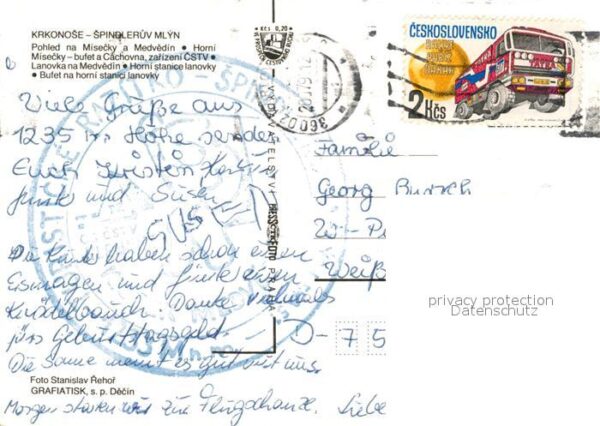 KRKONOŠE – ŠPINDLERŮV MLÝN
Pohled na Mísečky a Medvědín • Horní
Mísečky – bufet a Cáchovna, zařízení ČSTV •
Lanovka na Medvědín • Horní stanice lanovky
• Bufet na horní stanici lanovky
Kčs 0,20
ČESKOSLOVENSKO
2 Kčs
Viele Grüße aus
1235 m Höhe senden
Euch Kirstin
und Susen
SUSEN
Die Kinder haben schon einen
Eismagen und einen
Knödelbauch. Danke vielmals
fürs Geburtstagsgeld.
Die Sonne meint es gut mit uns.
Morgen starten wir zur Flugschanze. Liebe
Familie
Georg
W-P
Weiß
D-75
privacy protection
Datenschutz
PRESSFOTO PRAHA
Foto Stanislav Řehoř
GRAFIATISK, s. p. Děčín